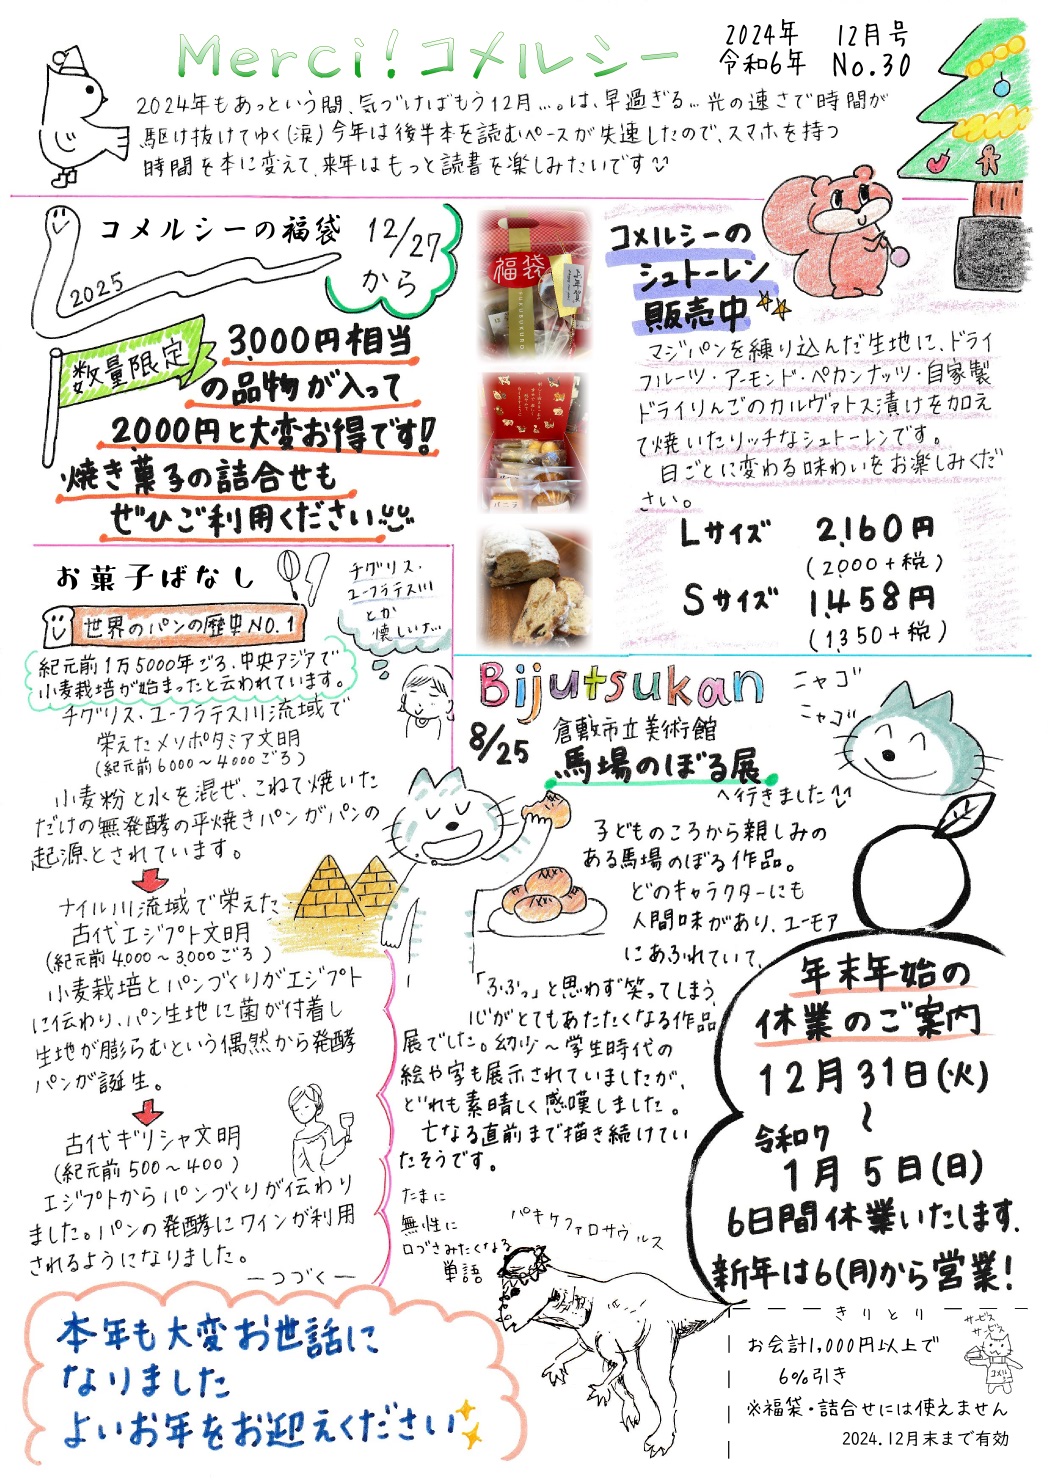 Merci!コメルシー
2024年 12月号
令和6年 No.30
2024年もあっという間、気づけばもう12月…。は、早過ぎる…光の速さで時間が
駆け抜けてゆく(涙)今年は後半本を読むペースが失速したので、スマホを持つ
時間を本に変えて、来年はもっと読書を楽しみたいです
コメルシーの福袋
12/27
から
2025
数量限定
3,000円相当
の品物が入って
2,000円と大変お得です!!
焼き菓子の詰合せも
ぜひご利用ください
福袋
コメルシーの
シュトーレン
販売中
マジパンを練り込んだ生地に、ドライ
フルーツ・アーモンド・ペカンナッツ・自家製
ドライりんごのカルヴァトス漬けを加え
て焼いたリッチなシュトーレンです。
日ごとに変わる味わいをお楽しみくだ
さい。
Lサイズ 2,160円
(2,000+税)
Sサイズ 1,458円
(1,350+税)
お菓子ばなし
世界のパンの歴史NO.1
チグリス・
ユーフラテス川
とか
懐しい…
紀元前1万5000年ごろ、中央アジアで
小麦栽培が始まったと云われています。
チグリス・ユーフラテス川流域で
栄えたメソポタミア文明
(紀元前6000〜4000ごろ)
小麦粉と水を混ぜ、こねて焼いた
だけの無発酵の平焼きパンがパンの
起源とされています。
ナイル川流域で栄えた
古代エジプト文明
(紀元前4,000〜3,000ごろ)
小麦栽培とパンづくりがエジプト
に伝わり、パン生地に菌が付着し
生地が膨らむという偶然から発酵
パンが誕生。
古代ギリシャ文明
(紀元前500〜400)
エジプトからパンづくりが伝わり
ました。パンの発酵にワインが利用
されるようになりました。
ーつづくー
Bijutsukan
8/25
倉敷市立美術館
馬場のぼる展
へ行きました
ニャゴ
ニャゴ
子どものころから親しみの
ある馬場のぼる作品。
どのキャラクターにも
人間味があり、ユーモア
にあふれていて、
「ふふっ」と思わず笑ってしまう、
心がとてもあたたくなる作品
展でした。幼少〜学生時代の
絵や字も展示されていましたが、
どれも素晴しく感嘆しました。
亡なる直前まで描き続けてい
たそうです。
たまに
無性に
口づさみたくなる
単語
パキケファロサウルス
年末年始の
休業のご案内
12月31日(火)
〜
令和7
1月5日(日)
6日間休業いたします.
新年は6(月)から営業!
本年も大変お世話に
なりました
よいお年をお迎えください
きりとり
お会計1,000円以上で
6%引き
※福袋・詰合せには使えません
2024.12月末まで有効
サービス
サービス